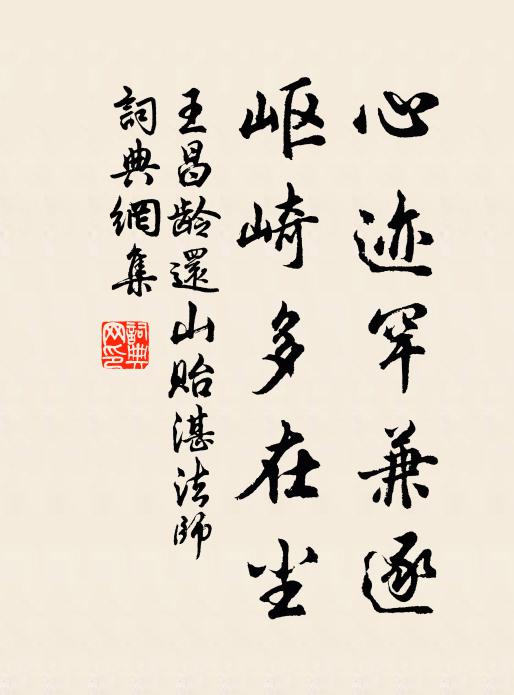 心迹罕兼逐
岖崎多在尘
王昌龄還山贻湛法師
詞典網集
詞典
网印